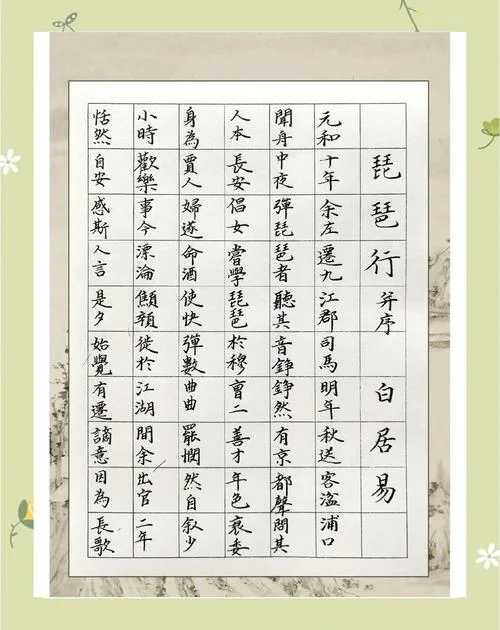 琵琶行 并序 白居易
元和十年余左遷九江郡司馬明年秋送客湓浦口
聞舟中夜彈琵琶者聽其音錚錚然有京都聲問其
人本長安倡女嘗學琵琶於穆曹二善才年色衰委
身為賈人婦遂命酒使快彈數曲曲罷憫然自叙少
小時歡樂事今漂淪顦顇徙於江湖間余出官二年
恬然自安感斯人言是夕始覺有遷謫意因為長歌